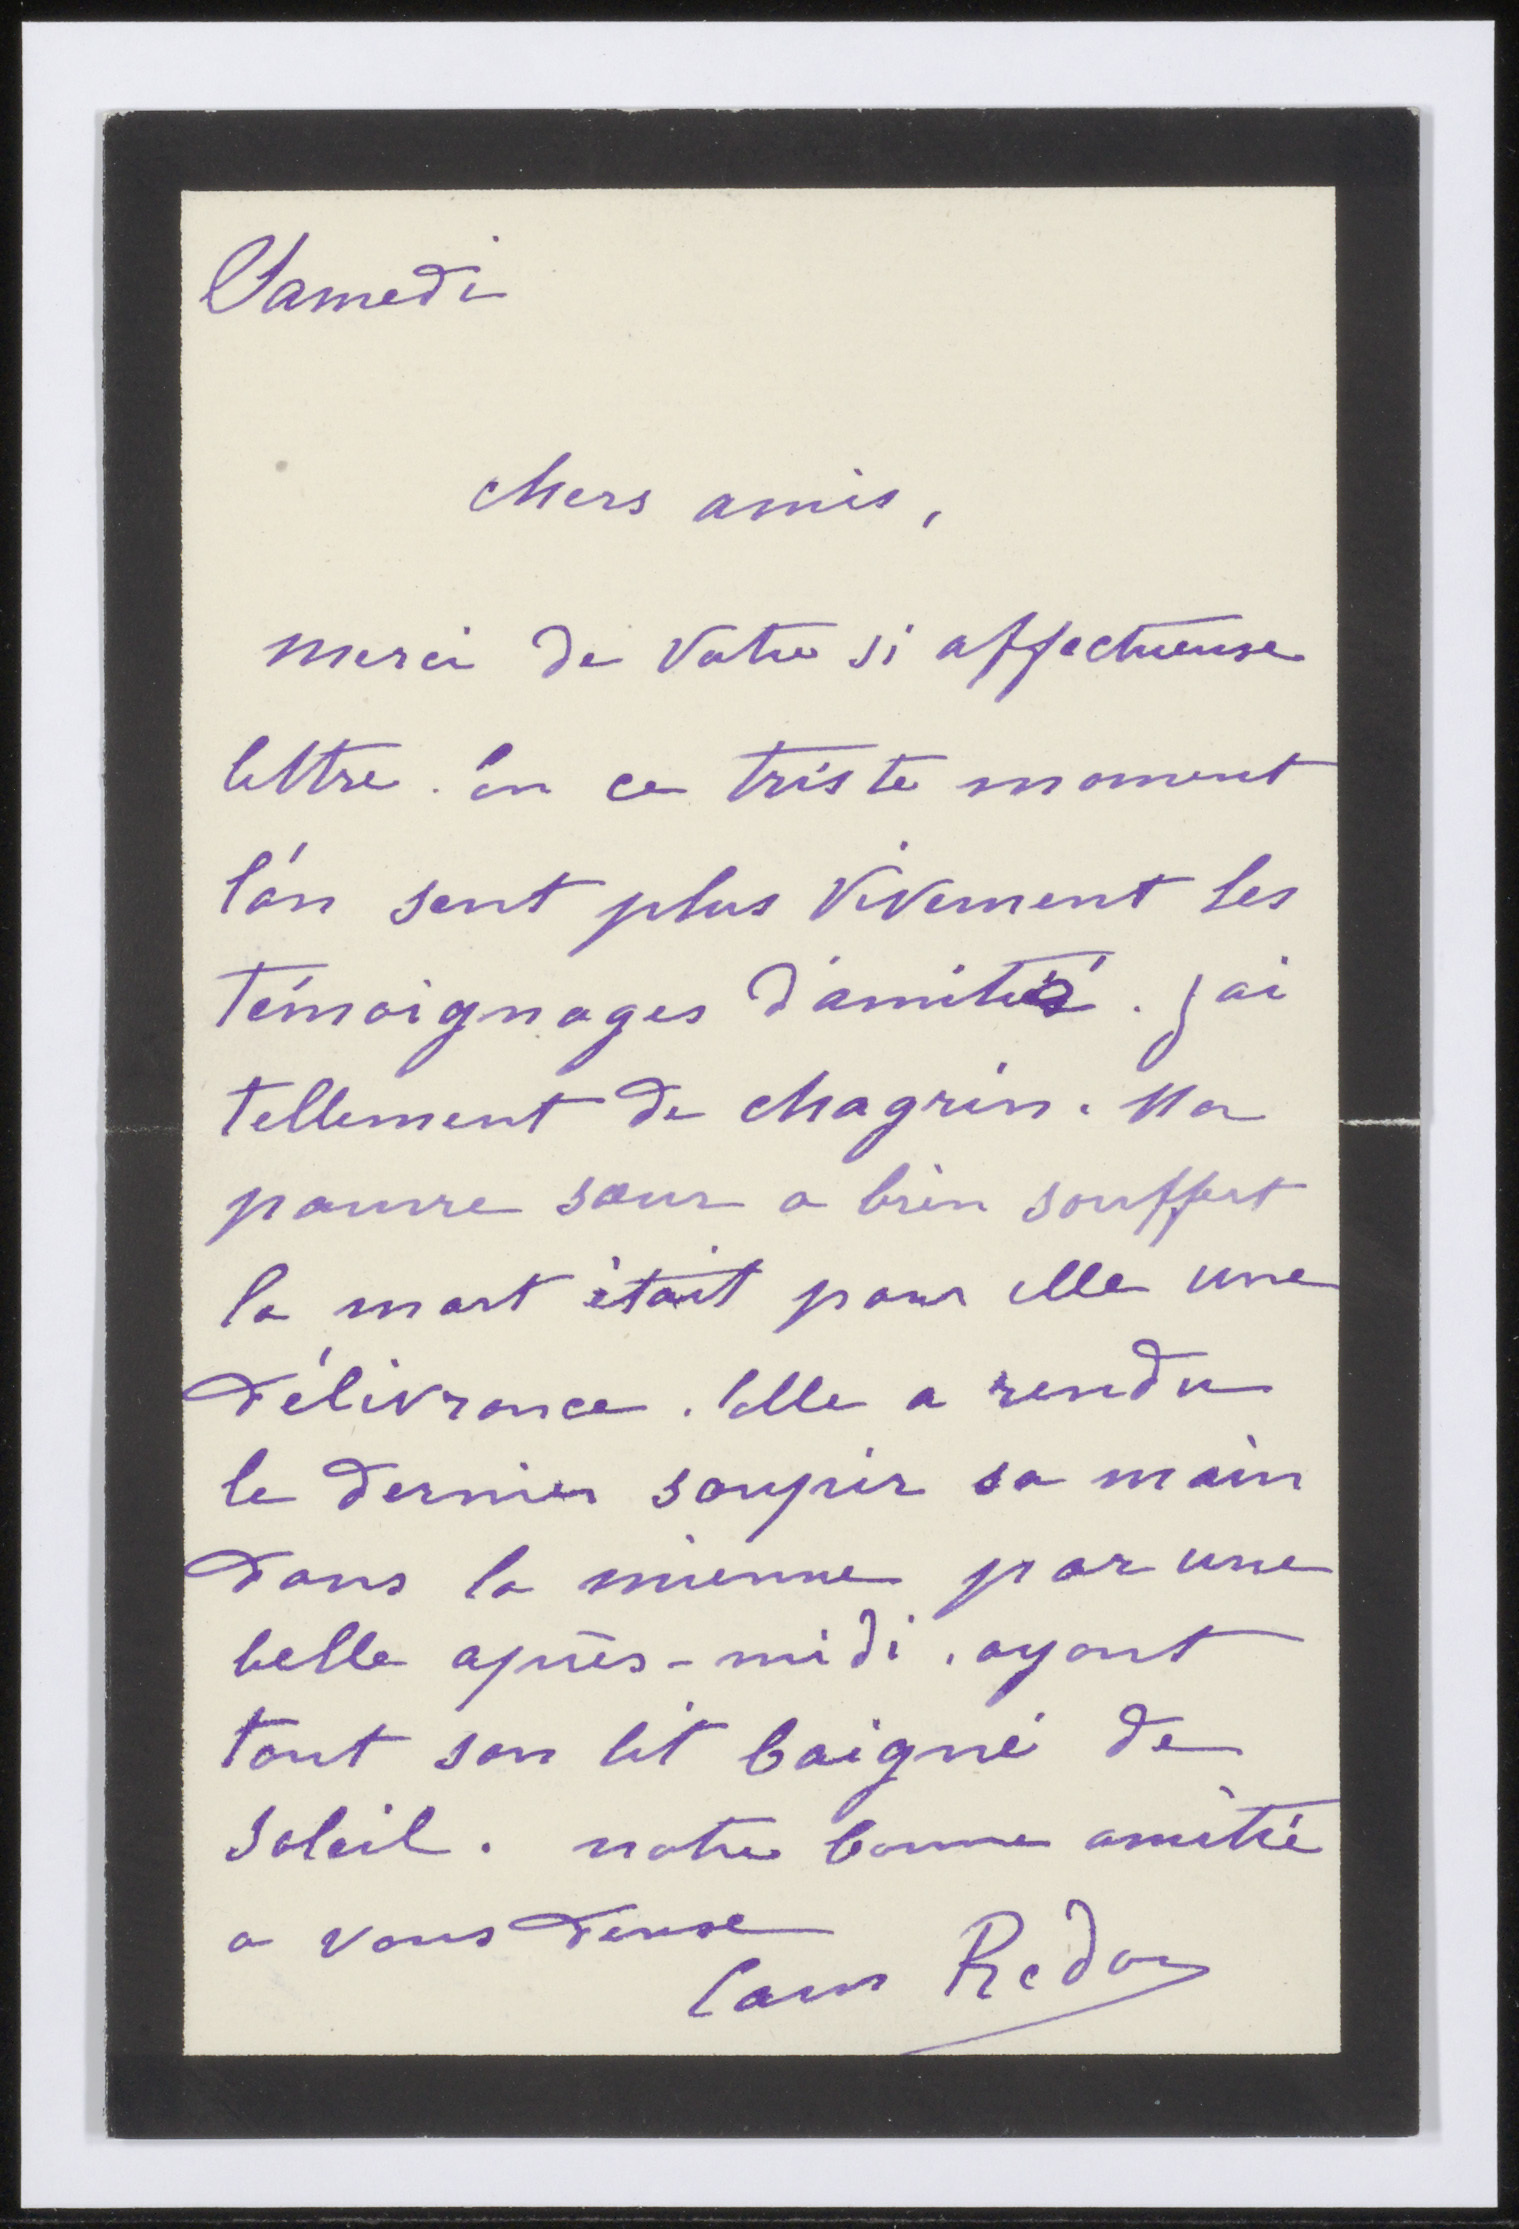 Samedi
Chers amis,
merci de votre si affectueuse
lettre. En ce triste moment
l'on sent plus vivement les
témoignages d'amitié. J'ai
tellement de chagrin. Ma
pauvre sœur a bien souffert
la mort était pour elle une
délivrance. Elle a rendu
le dernier soupir sa main
dans la mienne par une
belle après-midi, ayant
tout son lit baigné de
soleil. notre bonne amitié
a vous deux
Cam Redon